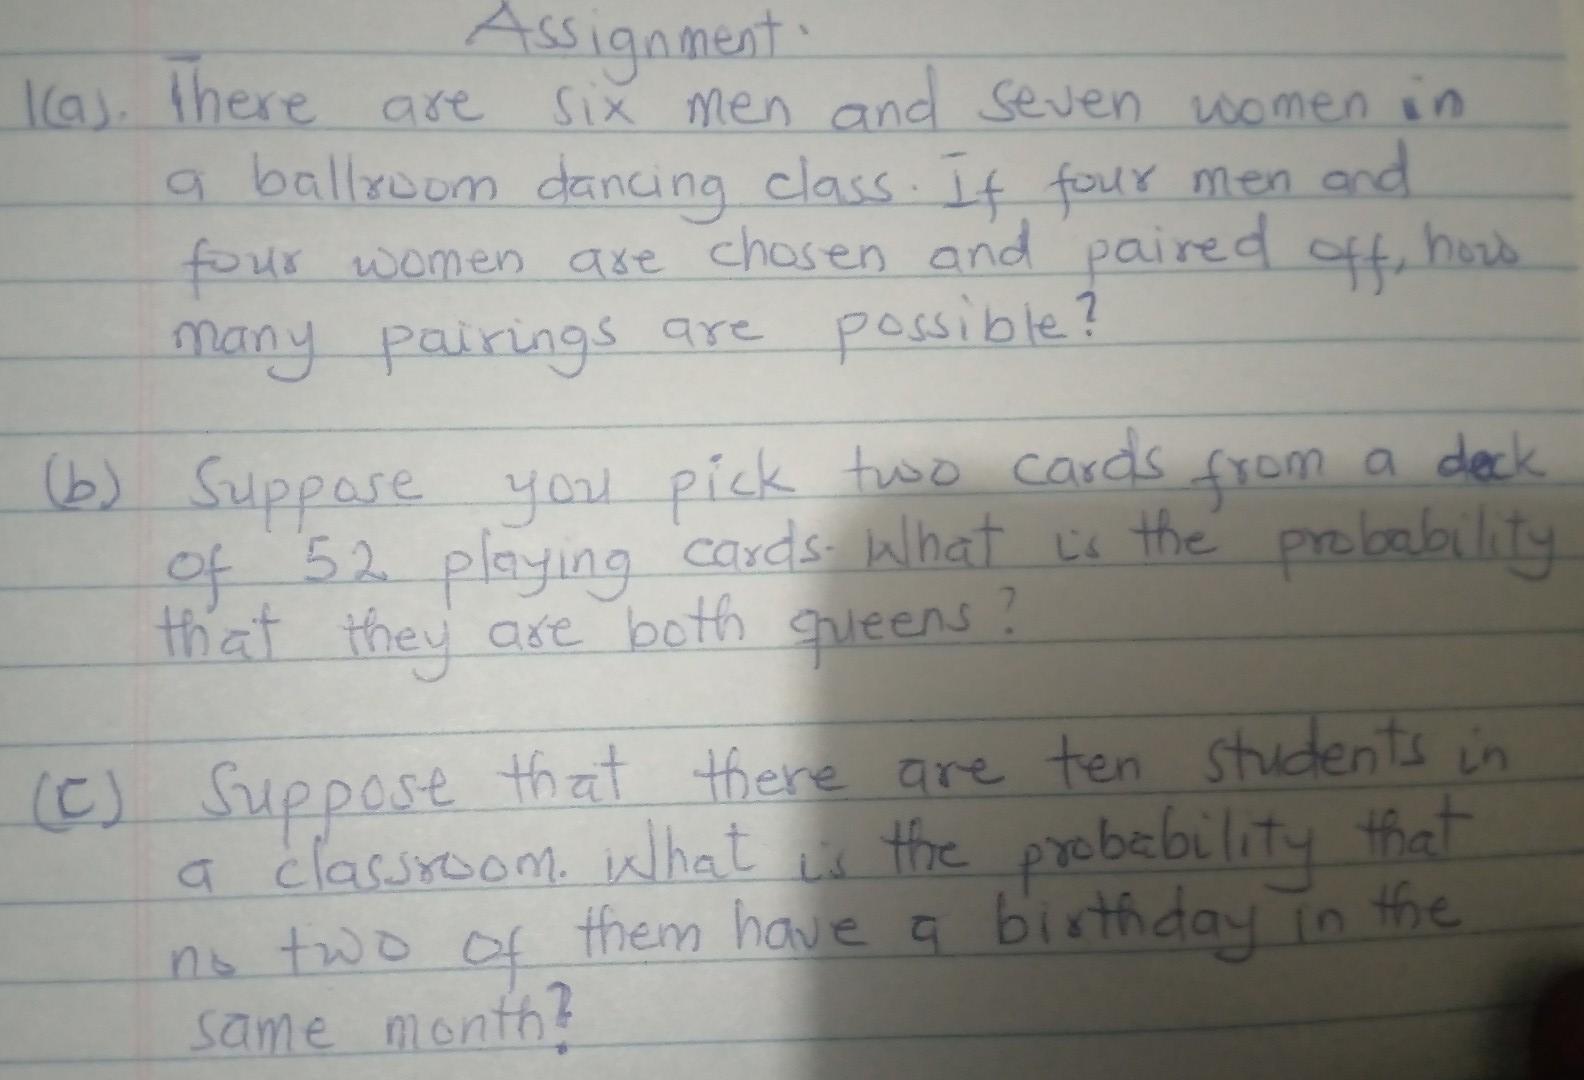 Assignment.
1(a). There are six men and seven women in
a ballroom dancing class. If four men and
four women are chosen and paired off, how
many pairings are possible?
(b) Suppose you pick two cards from a deck
of 52 playing cards. What is the probability
that they are both queens?
(c) Suppose that there are ten students in
a classroom. What is the probability that
no two of them have a birthday in the
same month?